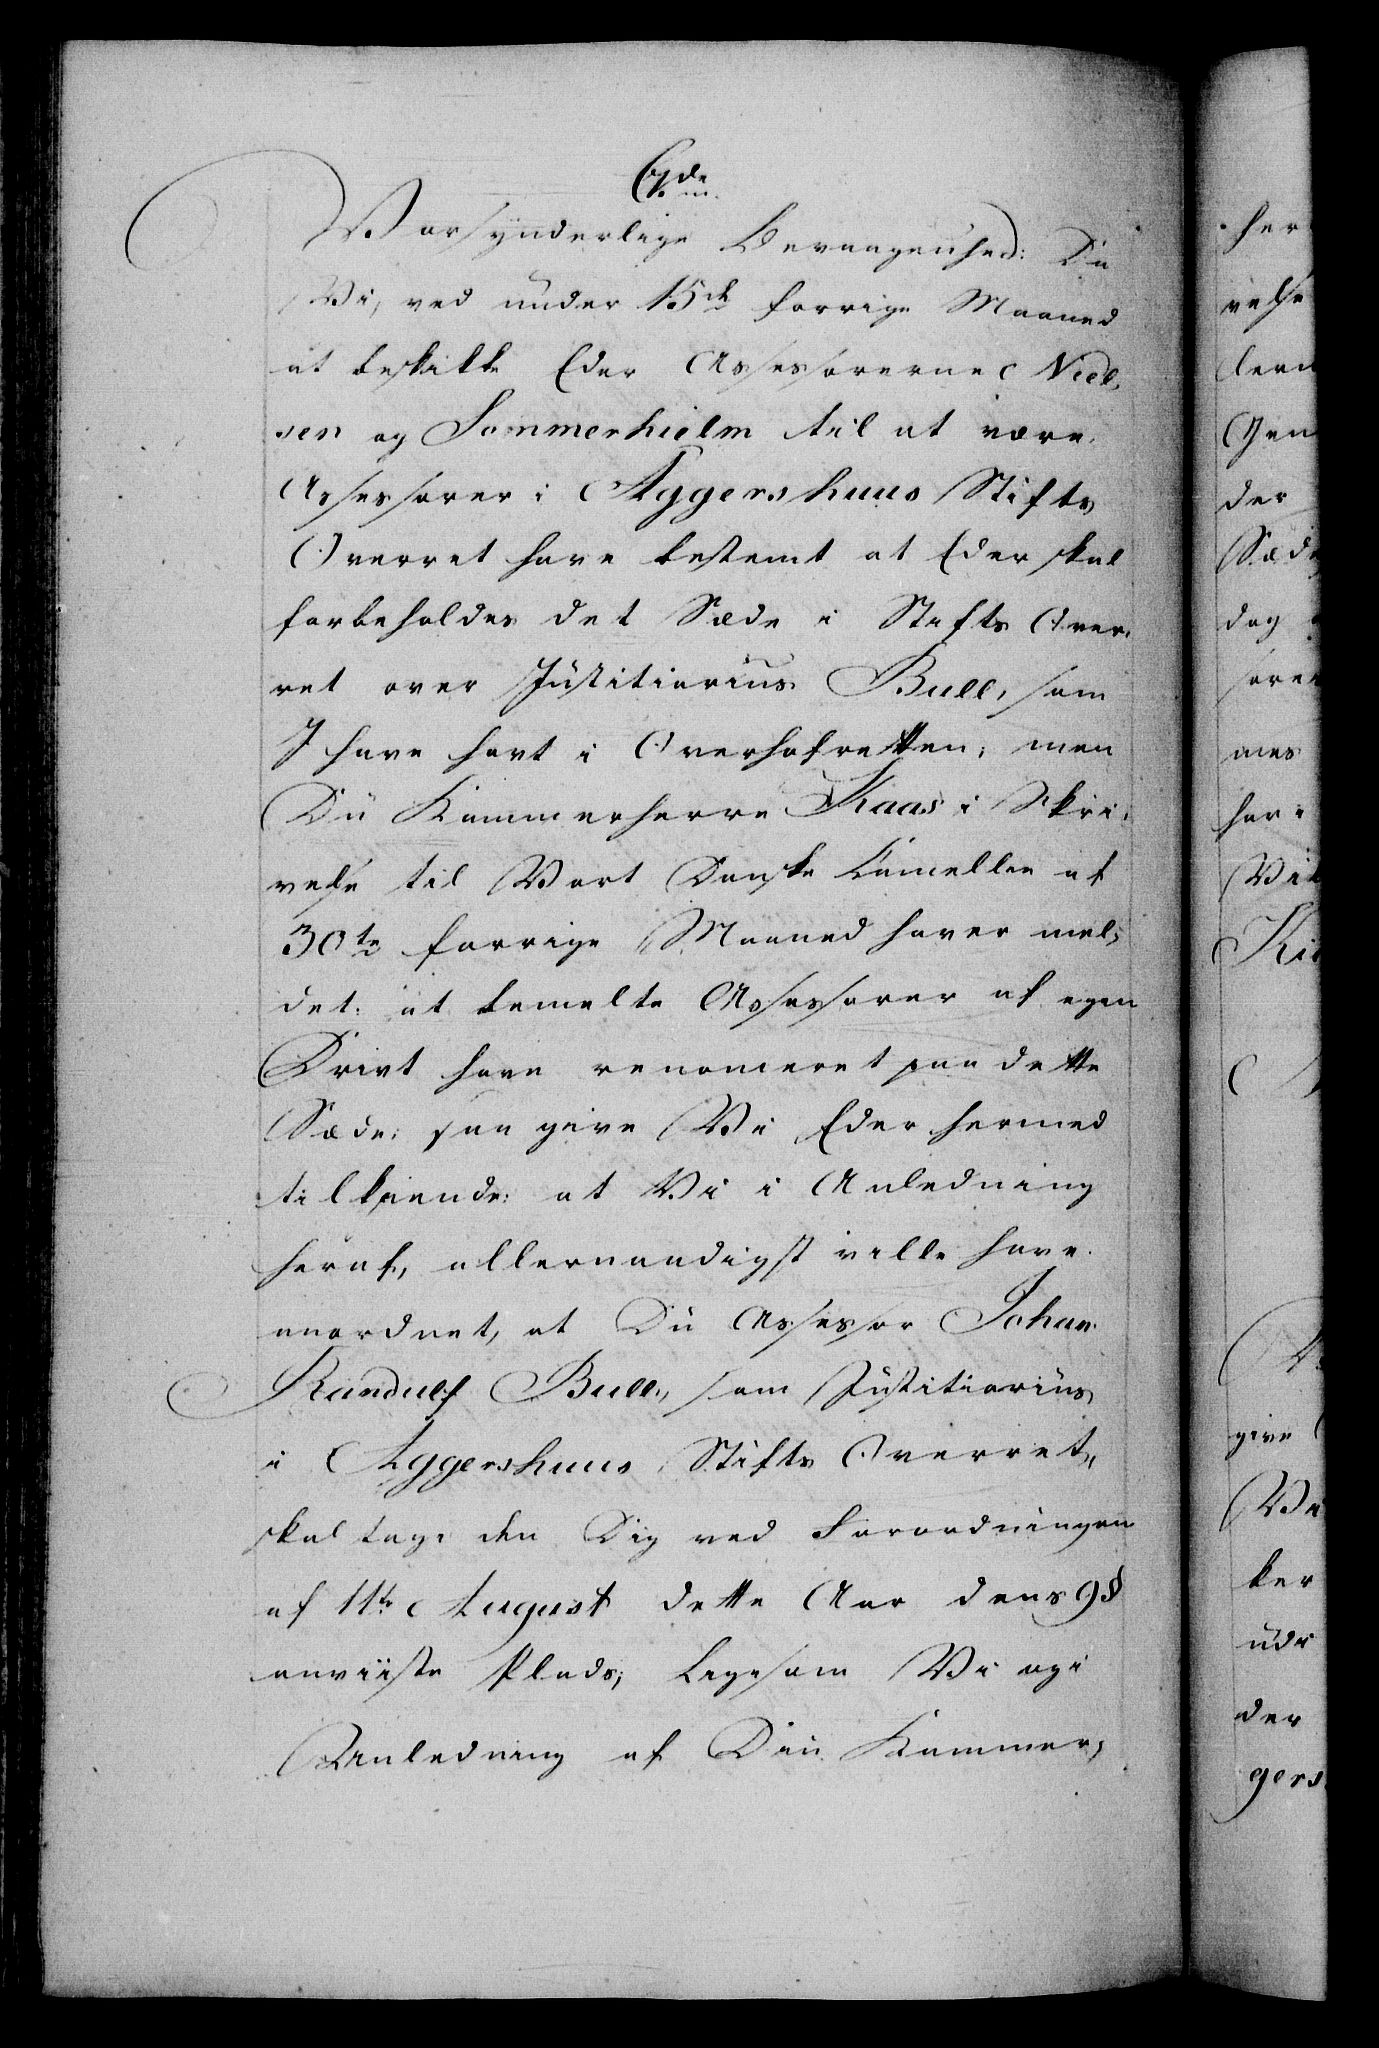 Vor synderlige Bevaagenhed: Da
Vi, ved under 15de forrige Maaned
at beskikke Eder Assessorerne Niel-
sen og Sommerhielm til at være
Assessorer i Aggershuus Stifts
Overret have bestemt at Eder skal
forbeholdes det Sæde i Stifts Over-
ret over Justitiarius Bull, som
I have havt i Overhofretten; men
Du Kammerherre Kaas i Skri-
velse til Vort Danske Cancellie af
30te forrige Maaned haver mel-
det: at bemelte Assessorer af egen
Drivt have renonceret paa dette
Sæde; saa give Vi Eder hermed
tilkiende: at Vi i Anledning
heraf, allernaadigst ville have
anordnet, at Du Assessor Johan
Randulf Bull, som Justitiarius
i Aggershuus Stifts Overret,
skal tage den Dig ved Forordningen
af 11te August dette Aar dens 9§
anviiste Plads; Ligesom Vi og i
Anledning af Din Kammer-
her
velse
Gen
der
Sæde
dog
mes
har
Ki
give
Vi
ker
der
gers